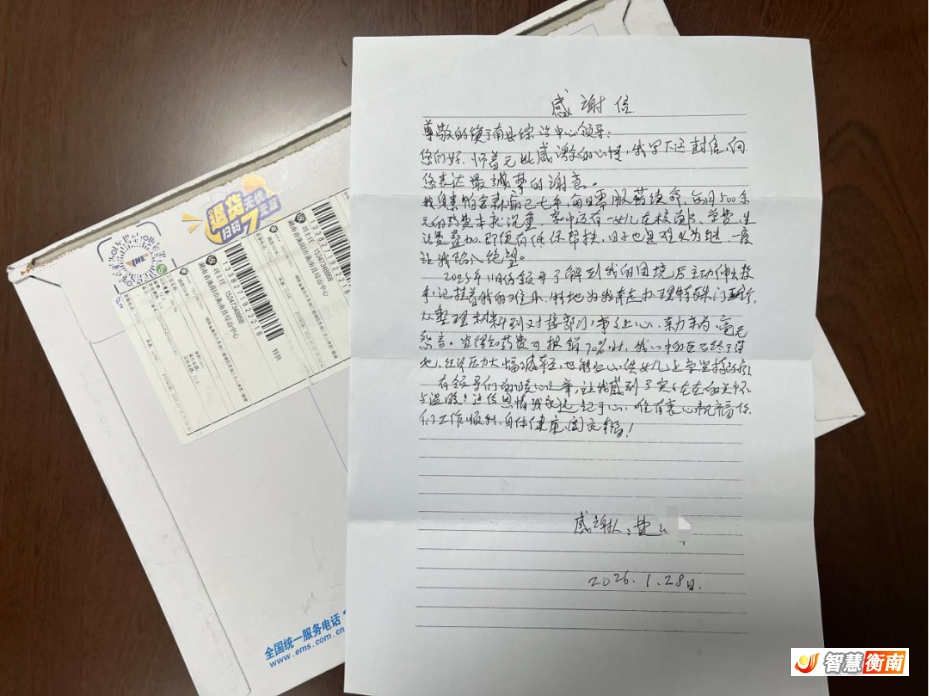 感谢信
尊敬的衡南县综治中心领导:
您们好.怀着无比感激的心情,我写下这封信,向
您表达最诚挚的谢意。
我患帕金森病已七年,每日需服药续命,每月500余
元的药费本就沉重,家中还有一女儿在校读书,学费、生
活费叠加,即便有低保帮扶,日子也是难以为继,一度
让我陷入绝望。
2025年11月份领导了解到我的困境后主动伸出援
手,记挂着我的难处,特地为我奔走办理特殊门诊,
从整理材料到对接部门,事事上心、亲力亲为,毫无
怨言。当得知药费可报销70%时,我心中的巨石终于落
地,经济压力大幅减轻,也能安心供女儿上学坚持治疗
有领导们的暖心之举,让我感到了实实在在的关怀
与温暖!这份恩情我永远记于心,唯有衷心祝福您
们工作顺利,身体健康阖家幸福!
感谢人:
2026.1.28日.
退货
7
EMS
湖南省衡阳市衡南县综治中心
全国统一服务电话
www.ems.com.cn
智慧衡南